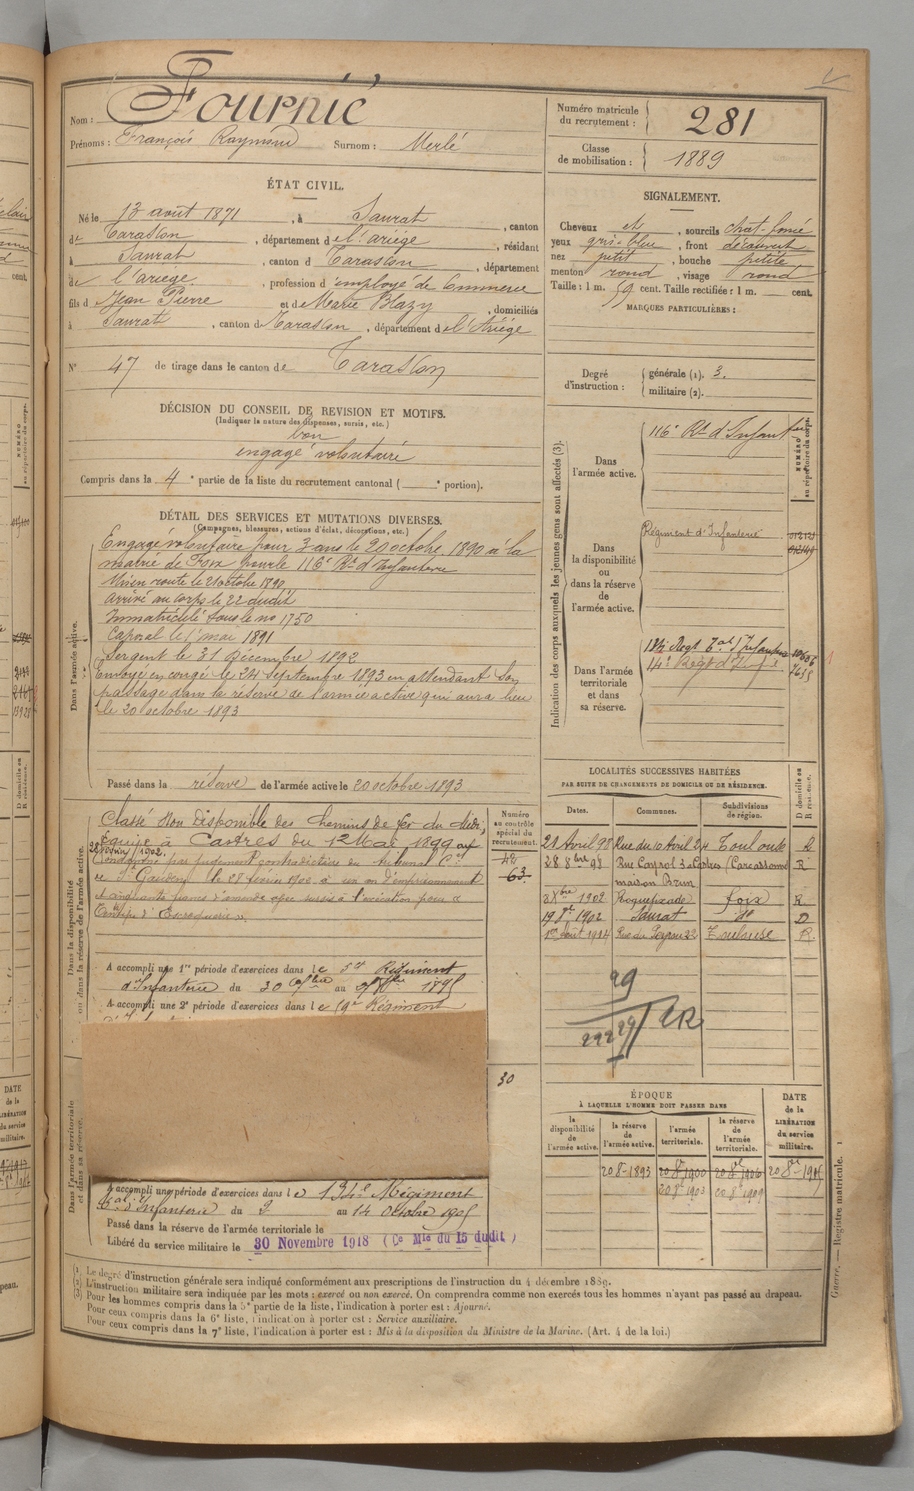 Nom : Fournié
Prénoms : François Raymond Surnom : Merlé
Numéro matricule du recrutement : 281
Classe de mobilisation : 1889
ÉTAT CIVIL.
Né le 13 août 1871, à Saurat, canton
de Tarascon, département de l'ariège, résidant
à Saurat, canton de Tarascon, département
de l'ariege, profession d'employé de Commerce
fils de Jean Pierre et de Marie Blazy, domiciliés
à Saurat, canton de Tarascon, département de l'Ariège
N° 47 de tirage dans le canton de Tarascon
SIGNALEMENT.
Cheveux et, sourcils chat-foncé
yeux gris-bleu, front découvert
nez petit, bouche petite
menton rond, visage rond
Taille : 1 m. 59 cent. Taille rectifiée : 1 m. cent.
MARQUES PARTICULIÈRES :
Degré d'instruction : générale (1). 3.
militaire (2).
DÉCISION DU CONSEIL DE REVISION ET MOTIFS.
(Indiquer la nature des dispenses, sursis, etc.)
bon
engagé volontaire
Compris dans la 4e partie de la liste du recrutement cantonal ( e portion).
DÉTAIL DES SERVICES ET MUTATIONS DIVERSES.
(Campagnes, blessures, actions d'éclat, décorations, etc.)
Dans l'armée active.
Engagé volontaire pour 3 ans le 20 octobre 1890 à la
mairie de Foix pour le 116e Rt d'Infanterie
Mis en route le 21 octobre 1890
Arrivé au corps le 22 dudit
Immatriculé sous le no 1750
Caporal le 1 mai 1891
Sergent le 31 Décembre 1892
Envoyé en congé le 24 septembre 1893 en attendant son
passage dans la réserve de l'armée active qui aura lieu
le 20 octobre 1893
Passé dans la réserve de l'armée active le 20 octobre 1893
Dans la disponibilité ou dans la réserve de l'armée active.
Classé Non disponible des chemins de fer du Midi,
Equipe à Castres du 12 Mai 1899 au
Condamné par jugement contradictoire du tribunal Cel
de St Gaudens le 28 février 1902 à un an d'emprisonnement
et cinquante francs d'amende avec sursis à l'exécution pour
d'Escroquerie
A accompli une 1re période d'exercices dans le Régiment
d'Infanterie du 30 au 1895
A accompli une 2e période d'exercices dans le Régiment
Numéro au contrôle spécial du recrutement.
42
63
30
Dans l'armée territoriale et dans sa réserve.
A accompli une période d'exercices dans le 134e Régiment
d'Infanterie du 2 au 14 octobre 1905
Passé dans la réserve de l'armée territoriale le
Libéré du service militaire le 30 Novembre 1918 (Ce Mle du 15 dudit)
Indication des corps auxquels les jeunes gens sont affectés (3).
NUMÉRO au répertoire du corps.
Dans l'armée active. 116e Rt d'Infanterie
Dans la disponibilité ou dans la réserve de l'armée active. Régiment d'Infanterie
Dans l'armée territoriale et dans sa réserve. 134 Regt Tal d'Infanterie
LOCALITÉS SUCCESSIVES HABITÉES
PAR SUITE DE CHANGEMENTS DE DOMICILE OU DE RÉSIDENCE.
Dates. Communes. Subdivisions de région. D domicile ou R résidence.
21 Avril 98 Toulouse R
28 8bre 98 Rue Cayrol 3 Castres Carcassonne R
maison Brun
1902 Roquefixade foix R
1902 Saurat do D
1er août 1914 Toulouse R
ÉPOQUE
À LAQUELLE L'HOMME DOIT PASSER DANS
la disponibilité de l'armée active.
la réserve de l'armée active.
l'armée territoriale.
la réserve de l'armée territoriale.
DATE de la LIBÉRATION du service militaire.
20 8 1893 20 8 1900 20 8 1906 20 8 1915
20 8 1903 20 8 1909
(1) Le degré d'instruction générale sera indiqué conformément aux prescriptions de l'instruction du 4 décembre 1889.
(2) L'instruction militaire sera indiquée par les mots : exercé ou non exercé. On comprendra comme non exercés tous les hommes n'ayant pas passé au drapeau.
(3) Pour les hommes compris dans la 5e partie de la liste, l'indication à porter est : Ajourné.
Pour ceux compris dans la 6e liste, l'indication à porter est : Service auxiliaire.
Pour ceux compris dans la 7e liste, l'indication à porter est : Mis à la disposition du Ministre de la Marine. (Art. 4 de la loi.)
Guerre. — Registre matricule. 1